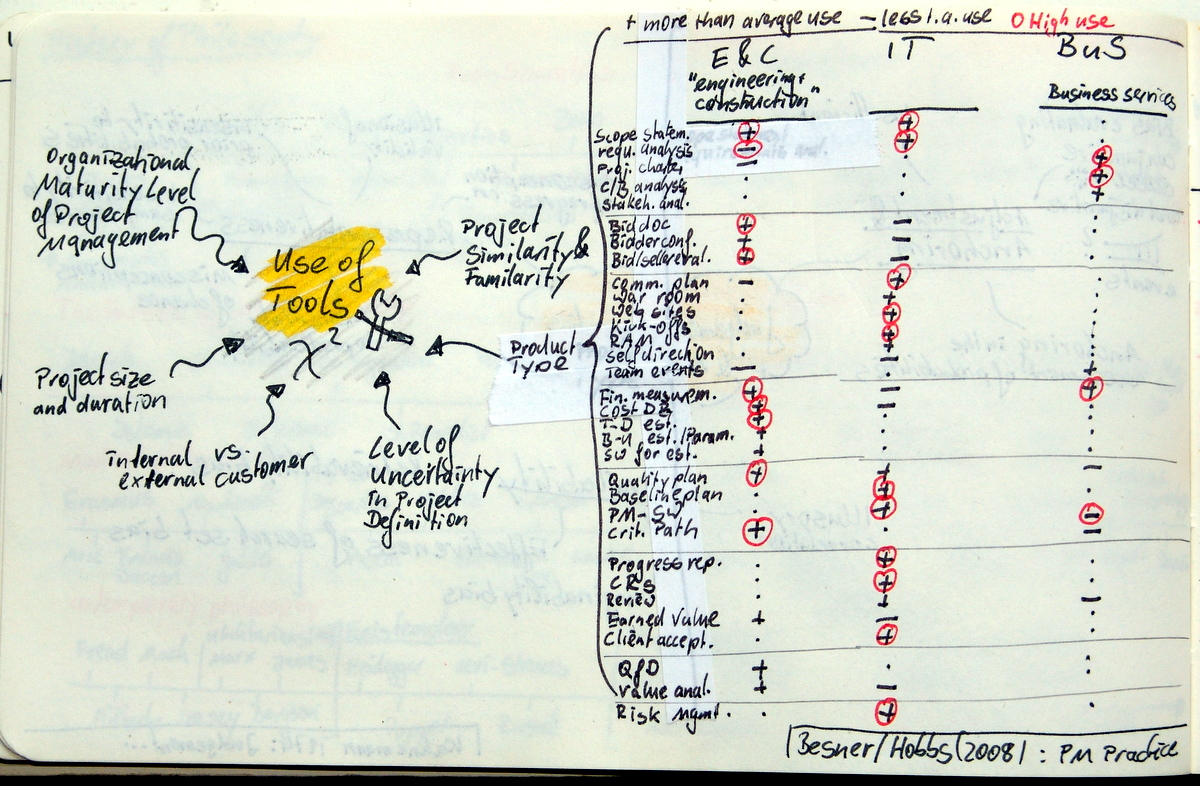 Organizational
Maturity Level
of Project
Management
Use of
Tools
Project
Similarity &
Familarity
Project size
and duration
internal vs.
external customer
Level of
Uncertainty
in Project
Definition
Product
Type
+ more than average use - less t.a. use O High use
E & C IT BuS
"engineering + Business services
construction"
Scope statem. + +
requ. analysis - + .
Proj. charter - . +
C/B analysis . . +
stakeh. anal. . . +
Bid doc + - .
Bidderconf. + - .
Bid/seller eval. + - .
Comm. plan - + .
War room . + .
Web sites . + .
Kick-offs . + .
RAM . + .
Self direction . - .
Team events - . +
Fin. measurem. + - +
Cost DB + - .
T-D est. + . .
B-U est./Param. + . .
SW for est. + . .
Quality plan + + -
Baseline plan . + .
PM-SW . + -
Crit. Path + . -
Progress rep. . + .
CRs . + .
Review . + -
Earned value + - .
Client accept. . + .
QfD + . .
Value anal. + - .
Risk Mgmt. . + .
Besner/Hobbs (2008) : PM Practice